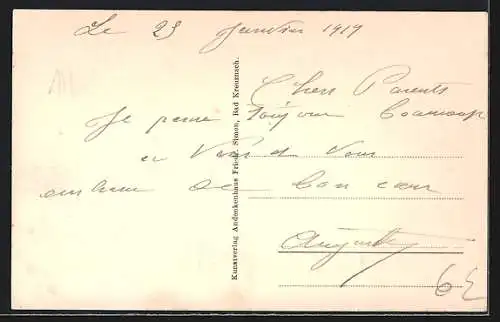 Le 23 Janvier 1919
Chers Parents
Je pense toujour beaucoup
et Vous
embrasse de bon cœur
Auguste
Kunstverlag Andenkenhaus Friedr. Simon, Bad Kreuznach.
6E